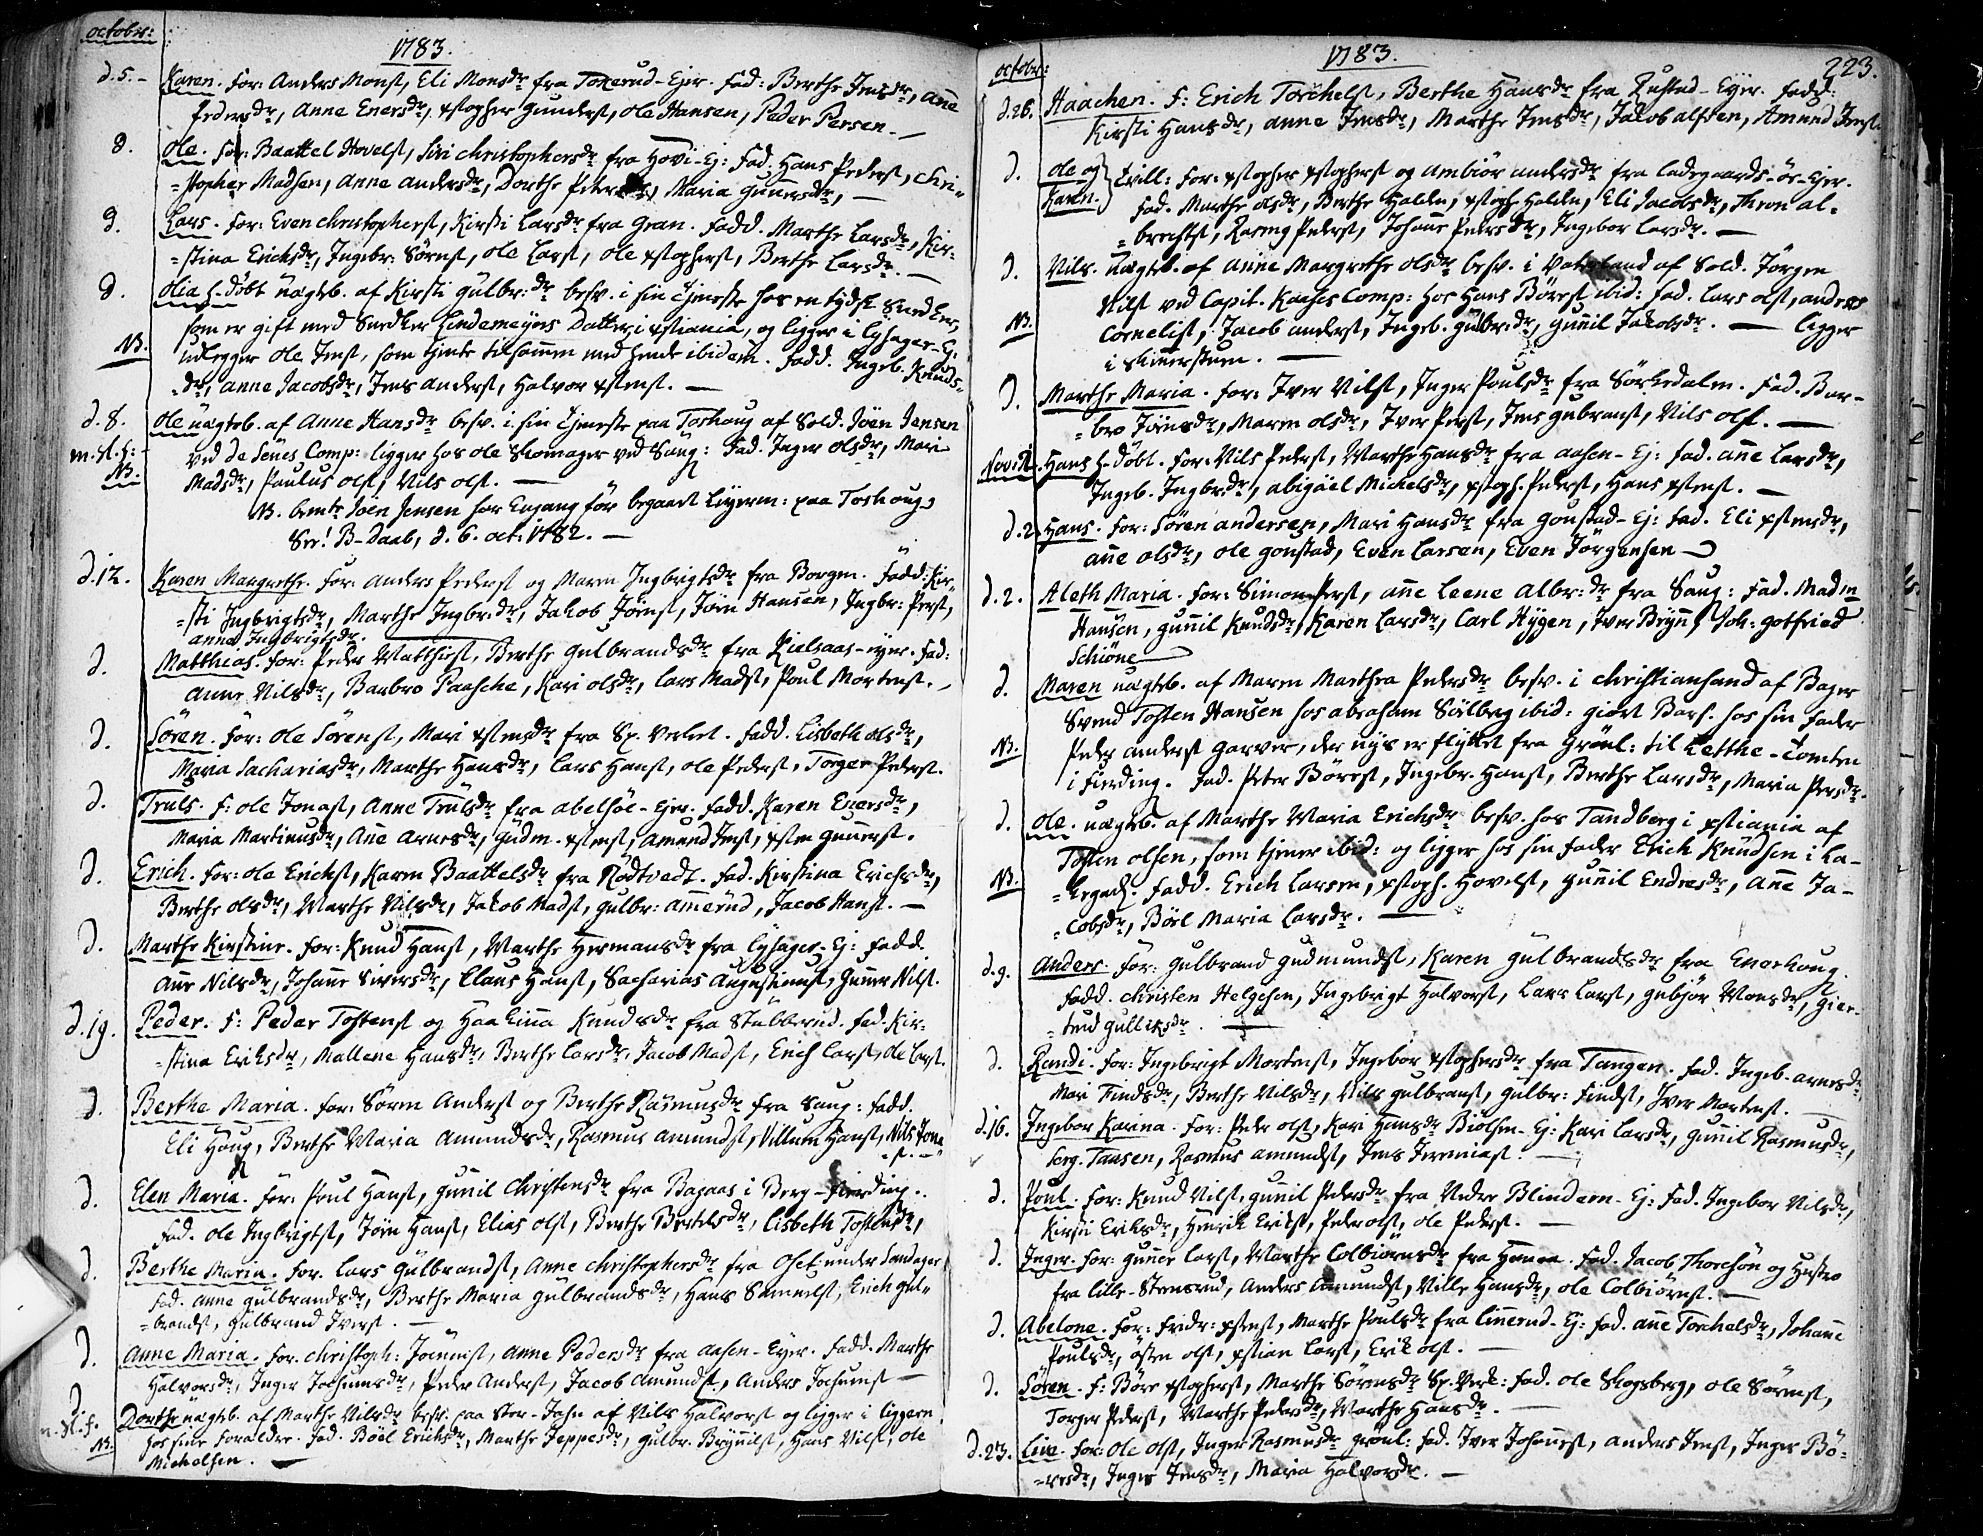 octobr:
1783.
d. 5. - Karen. For: Anders Monst, Eli Monsdr fra Tokerud-Ejer. Fad: Berthe Jensdr, Anne
Pedersdr, Anne Enersdr, xstopher Gunderst, Ole Hansen, Peder Persen. -
d. Ole. For: Baattel Hovelst, Siri Christophersdr fra Hovi-Ej: Fad. Hans Pederst, Chri-
=stopher Madsen, Anne Andersdr, Dorthe Pedersdr, Maria Gunersdr, -
d. Lars. For: Even Christopherst, Kirsti Larsdr fra Gran. Fadd. Marthe Larsdr, Kir-
=stina Erichsdr, Ingebr: Sörenst, Ole Larst, Ole xstopherst, Berthe Larsdr. -
d. Olia h. döbt uægteb. af Kirsti Gulbr:dr besv. i sin Tjeneste hos en tydsk Snedker,
som er gift med Snedker Lindemeyers Datter i xstiania, og ligger i Lysager-Ej:
NB. udlegger Ole Jenst, som tjente tilsammen med hende ibidem. Fadd. Ingeb. Knuds-
dr, Anne Jacobsdr, Jens Anderst, Halvor xstenst. -
d. 8. Ole uægteb. af Anne Hansdr besv. i sin Tjeneste paa Toshoug af Sold. Joen Jensen
m. st. f: ved de Seues Comp: ligger hos Ole Skomager ved Saug: Fad. Inger Olsdr, Mari
NB. Madsdr, Paulus Olst, Nils Olst. -
NB. bemte Joen Jensen har Engang för begaaet Leyerm: paa Toshoug,
See! B-Daab, d. 6. oct. 1782. -
d. 12. Karen Margrethe. For: Anders Pederst og Maren Ingbrigtsdr fra Borgen. Fadd: Kir-
=sti Ingbrigtsdr, Marthe Ingbr:dr, Jakob Jörnst, Jörn Hansen, Ingbr: Perst,
Anne Ingbrigtsdr.
d. Matthias. For: Peder Matthiest, Berthe Gulbrandsdr fra Kielsaas-ejer. Fad:
Anne Nilsdr, Barbro Paasche, Kari Olsdr, Lars Madst, Poul Mortenst. -
d. Sören. For: Ole Sörenst, Mari xstensdr fra Sp. Verket. Fadd. Lisbeth Olsdr,
Maria Sachariasdr, Marthe Hansdr, Lars Hanst, Ole Pederst, Torger Pederst.
d. Truls. F: Ole Jonast, Anne Trulsdr fra Abelsöe-Ejer. Fadd. Karen Enersdr,
Maria Martinusdr, Ane Arnesdr, Gudm. xstenst, Amund Jenst, xsten Gunerst.
d. Erich. For: Ole Erichst, Karen Baattelsdr fra Rödtvedt. Fad. Kirstina Erichsdr,
Berthe Olsdr, Marthe Nilsdr, Jakob Madst, Gulbr: Ammerud, Jacob Hanst. -
d. Marthe Kirstine. For: Knud Hanst, Marthe Hermansdr fra Lysager-Ej: Fadd.
Ane Nilsdr, Johanne Siversdr, Claus Hanst, Sacharias Augustinust, Guner Nilst.
d. 19. Peder. F: Peder Tostenst og Haakina Knudsdr fra Stubberud. Fad. Kir-
=stina Eriksdr, Mallene Hansdr, Berthe Larsdr, Jacob Madst, Erich Larst, Ole Larst.
d. Berthe Maria. For: Sören Anderst og Berthe Rasmusdr fra Saug: Fadd.
Eli Houg, Berthe Maria Amundsdr, Rasmus Amundst, Villum Hanst, Nils Jone-
st. -
d. Elen Maria. For: Poul Hanst, Gunil Christensdr fra Bagaas i Berg-Fierding.
Fad. Ole Ingbrigtst, Jörn Hanst, Elias Olst, Berthe Bertelsdr, Lisbeth Tostensdr,
d. Berthe Maria. For. Lars Gulbrandst, Anne Christophersdr fra Oset under Sandager
Fad. Anne Gulbrandsdr, Berthe Maria Gulbrandsdr, Hans Samuelst, Erich Gul-
=brandst, Gulbrand Iverst. -
d. Anne Maria. For. Christoph: Joenst, Anne Pedersdr fra Aasen-Eyer. Fadd. Marthe
Halvorsdr, Inger Jochumsdr, Peder Anderst, Jacob Amundst, Anders Jochumst -
d. Dorthe uægteb. af Marthe Nilsdr besv. paa Stor- af Nils Halvorst og ligger i
m. st. f. hos sine Forældre. Fad. Böel Erichsdr, Marthe Jeppesdr, Gulbr. Brynilst, Hans Nilst, Ole
NB. Michelsen. -
octobr:
1783.
223.
d. 26. Haachen. F: Erich Torchelst, Berthe Hansdr fra Rustad-Eyer. Fadd:
Kirsti Hansdr, Anne Jensdr, Marthe Jensdr, Jakob Alfsen, Amund Jenst.
d. Ole og Karen. } Tvill: For: xstopher xstopherst og Ambiör Andersdr fra Ladegaards-ör-Ejer.
Fad. Marthe Olsdr, Berthe Holden, xstoph Holden, Eli Jacobsdr, Thron Al-
=brechtst, Rasmus Pederst, Johanne Pedersdr, Ingebor Larsdr. -
d. Nils. uægteb. af Anne Margrethe Olsdr besv. i Vaterland af Sold. Jörgen
Nilst ved Capit. Kaases Comp: hos Hans Börrest ibid: Fad. Lars Olst, Anders
NB. Cornelist, Jacob Anderst, Ingeb. Gulbr:dr, Gunil Jakobsdr. - ligger
i Kinerstuen. -
d. Marthe Maria. For: Iver Nilst, Inger Poulsdr fra Sörkedalen. Fad. Bar-
=bro Jörnsdr, Maren Olsdr, Iver Perst, Jens Gubranst, Nils Olst. -
Nov: Hans h. döbt. For: Nils Pederst, Marthe Hansdr fra Aasen-Ej: Fad. Ane Larsdr,
Ingeb. Ingbr:dr, Abigäel Michelsdr, xstoph. Pederst, Hans xstenst. -
d. 2. Hans. For: Sören Andersen, Mari Hansdr fra Goustad-Ej: Fad. Eli xstensdr,
Ane Olsdr, Ole Goustad, Even Larsen, Even Jörgensen -
d. 2. Aleth Maria. For: Simon Perst, Ane Leene Albr:dr fra Saug: Fad. Madm
Hansen, Gunil Knudsdr, Karen Larsdr, Carl Hygen, Iver Bryn, Joh: Gotfried
Schiöne
d. Maren uægteb. af Maren Marthea Pedersdr besv. i Christiansand af Bager
Svend Tosten Hansen hos Abraham Sölberg ibid: giort Bars. hos sin Fader
NB. Peder Anderst Garver, der nys er flyttet fra Grönl: til Letthe-Tomten
i Fierding. Fad. Peter Börest, Ingebr. Hanst, Berthe Larsdr, Maria Persdr.
d. Ole. uægteb. af Marthe Maria Erichsdr besv. hos Tandberg i xstiania af
Tosten Olsen, som tjener ibid: og ligger hos sin Fader Erich Knudsen i La-
NB. . Fadd. Erich Larsen, xstoph. Hovelst, Gunil Endresdr, Ane Ja-
=cobsdr, Böel Maria Larsdr. -
d. 9. Anders. For: Gulbrand Gudmundst, Karen Gulbrandsdr fra Enerhoug.
Fadd. Christen Helgesen, Ingebrigt Halvorst, Lars Larst, Gubjör Monsdr, Gier-
=trud Gulliksdr. -
d. Randi. For: Ingebrigt Mortenst, Ingebor xstophersdr fra Tangen. Fad. Ingeb. Arnesdr
Mari Findsdr, Berthe Nilsdr, Nils Gulbranst, Gulbr: Findst, Iver Mortenst. -
d. 16. Ingebor Karina. For: Peder Olst, Kari Hansdr Biölsen-Ej: Kari Larsdr, Gunil Rasmusdr,
Serg. Tausen, Rasmus Amundst, Jens Jeremiast. -
d. Poul. For: Knud Nilst, Gunil Pedersdr fra Nedre Blindern-Ej: Fad. Ingebor Nilsdr,
Kirsti Eriksdr, Henrik Erikst, Peder Olst, Ole Pederst. -
d. Inger. For: Guner Larst, Marthe Colbiörnsdr fra . Fad. Jacob Thoresön og Hustro
fra Lille-Steensrud, Anders Amundst, Nille Hansdr, Ole Colbiörnst. -
d. Abelone. For: Fridr: xstenst, Marthe Poulsdr fra Linerud-Ej: Fad. Ane Torchelsdr, Johanne
Poulsdr, Östen Olst, xstian Larst, Erik Olst. -
d. Sören. F: Börre xstopherst, Marthe Sörensdr Sp. Verk: Fad. Ole Skogsberg, Ole Sörenst,
Torger Pederst, Marthe Pedersdr, Marthe Hansdr. -
d. 23. Live. For: Ole Olst, Inger Rasmusdr Grönl: Fad. Iver Johanest, Anders Jenst, Inger Bö-
=resdr, Inger Jensdr, Maria Halvorsdr. -